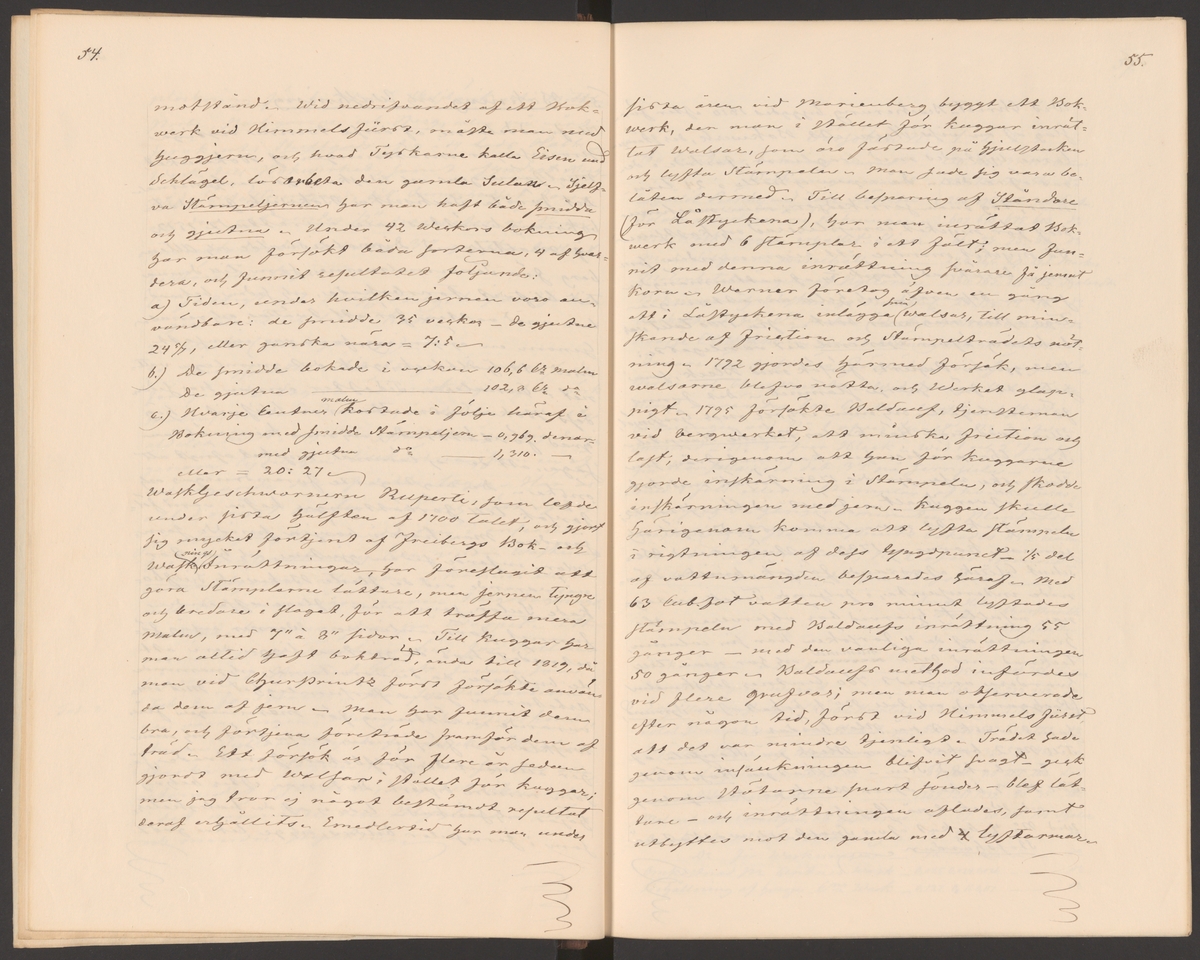 54.
motstånd. – Wid nedrifvandet af ett Bok-
werk vid Himmelsfürst, måste man med
huggjern, och hvad Tyskarne kalla Eisen und
Schlägel, lösarbeta den gamla Sulan. Sjelf-
va Stämpeljernen har man haft både smidda
och gjutna. Under 42 Weckors bokning
har man försökt båda sorterna, 4 af hvar-
dera, och funnit resultatet följande:
a) Tiden, under hvilken jernen voro an-
vändbare: de smidde 35 veckor – de gjutne
24 5/7, eller ganska nära = 7:5.
b.) De smidde bokade i veckan 106,6 Ctr malm
De gjutna 102,8 Ctr do
c.) Hvarje Centner malm kostade i följe häraf i
Bokning med smidde Stämpeljern – 0,969. denar.
med gjutna do — 1,310. —
eller = 20:27.
WaskGeschwornern Ruperti, som lefde
under sista hälften af 1700 talet, och gjort
sig mycket förtjent af Freibergs Bok- och
Waskninginrättningar, har föreslagit att
göra Stämplarne lättare, men jernen tyngre
och bredare i slaget, för att träffa mera
malm, med 7" à 8" sidor. Till Kuggar har
man altid haft bokträd, ända till 1819, då
man vid Churprintz först försökte använ-
da dem af jern. Man har funnit dem
bra, och förtjena företräde framför dem af
träd. Ett försök är för flere år sedan
gjordt med Walsar i stället för kuggar;
men jag tror ej något bestämdt resultat
deraf erhållits. Emedlertid har man under
55.
sista åren vid Marienberg byggt ett Bok-
werk, der man i stället för kuggar inrät-
tat Walsar, som äro fästade på hjulstocken
och lyfta Stämpeln. Man sade sig vara be-
låten dermed. Till besparing af Ståndare
(för Låstyckena), har man inrättat Bok-
werk med 6 stämplar i ett fält; men fun-
nit med denna inrättning svårare få jemnt
korn. Werner företog äfven en gång
att i Låstyckena inlägga små walsar, till min-
skande af friction och Stämpelträdets nöt-
ning. 1792 gjordes härmed försök, men
walsarne blefvo nötta, och Werket glapp-
rigt. 1795 försökte Baldauf, tjensteman
vid bergwerket, att minska friction och
last; derigenom att han för kuggarne
gjorde inskärning i Stämpeln, och skodde
inskärningen med jern. Kuggen skulle
härigenom komma att lyfta stämpeln
i rigtningen af dess tyngdpunct – 1/5 del
af vattumängden besparades häraf. Med
63 Cub.fot vatten pro minut lyftades
stämpeln med Baldaufs inrättning 55
gånger – med den vanliga inrättningen
50 gånger. Baldaufs method infördes
vid flere grufvor; men man observerade
efter någon tid, först vid Himmelsfürst
att det var mindre tjenligt. Trädet hade
genom insänkningen blifvit svagt – gick
genom stötarne snart sönder – blef lät-
tare – och inrättningen aflades, samt
utbyttes mot den gamla med lyftarmar.